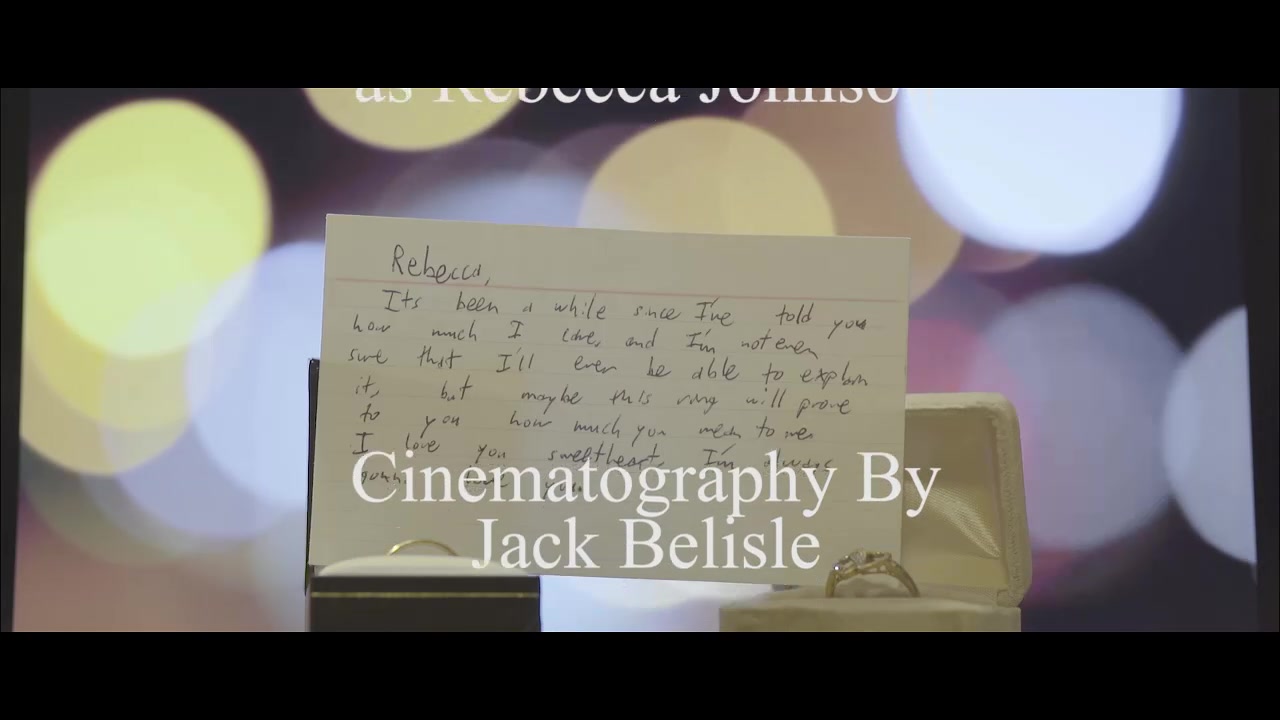 as Rebecca Johnso
Rebecca,
Its been a while since I've told you
how much I love, and I'm not even
sure that I'll ever be able to explain
it, but maybe this ring will prove
to you how much you mean to me.
I love you sweetheart, I'm always
gonna love you
Cinematography By
Jack Belisle